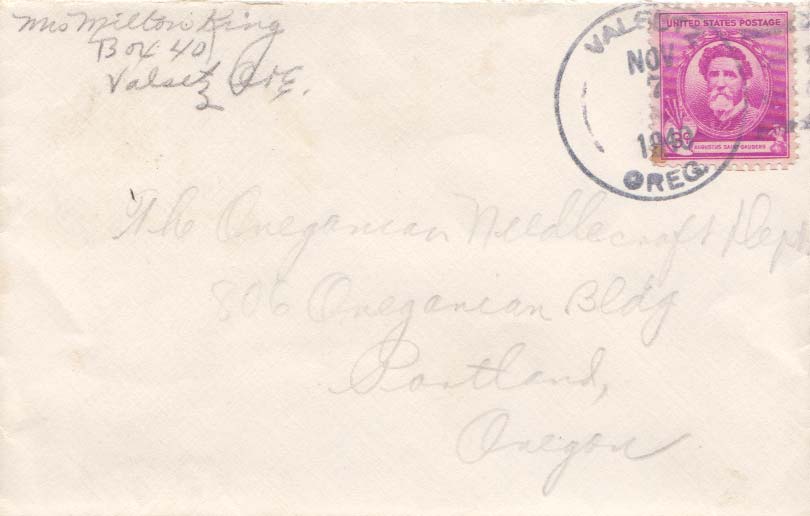 Mrs Milton King
Box 401
Valsetz Ore.
VALSET
NOV
7
1940
OREG.
UNITED STATES POSTAGE
3¢
AUGUSTUS SAINT-GAUDENS
The Oregonian Needlecraft Dept
806 Oregonian Bldg
Portland,
Oregon